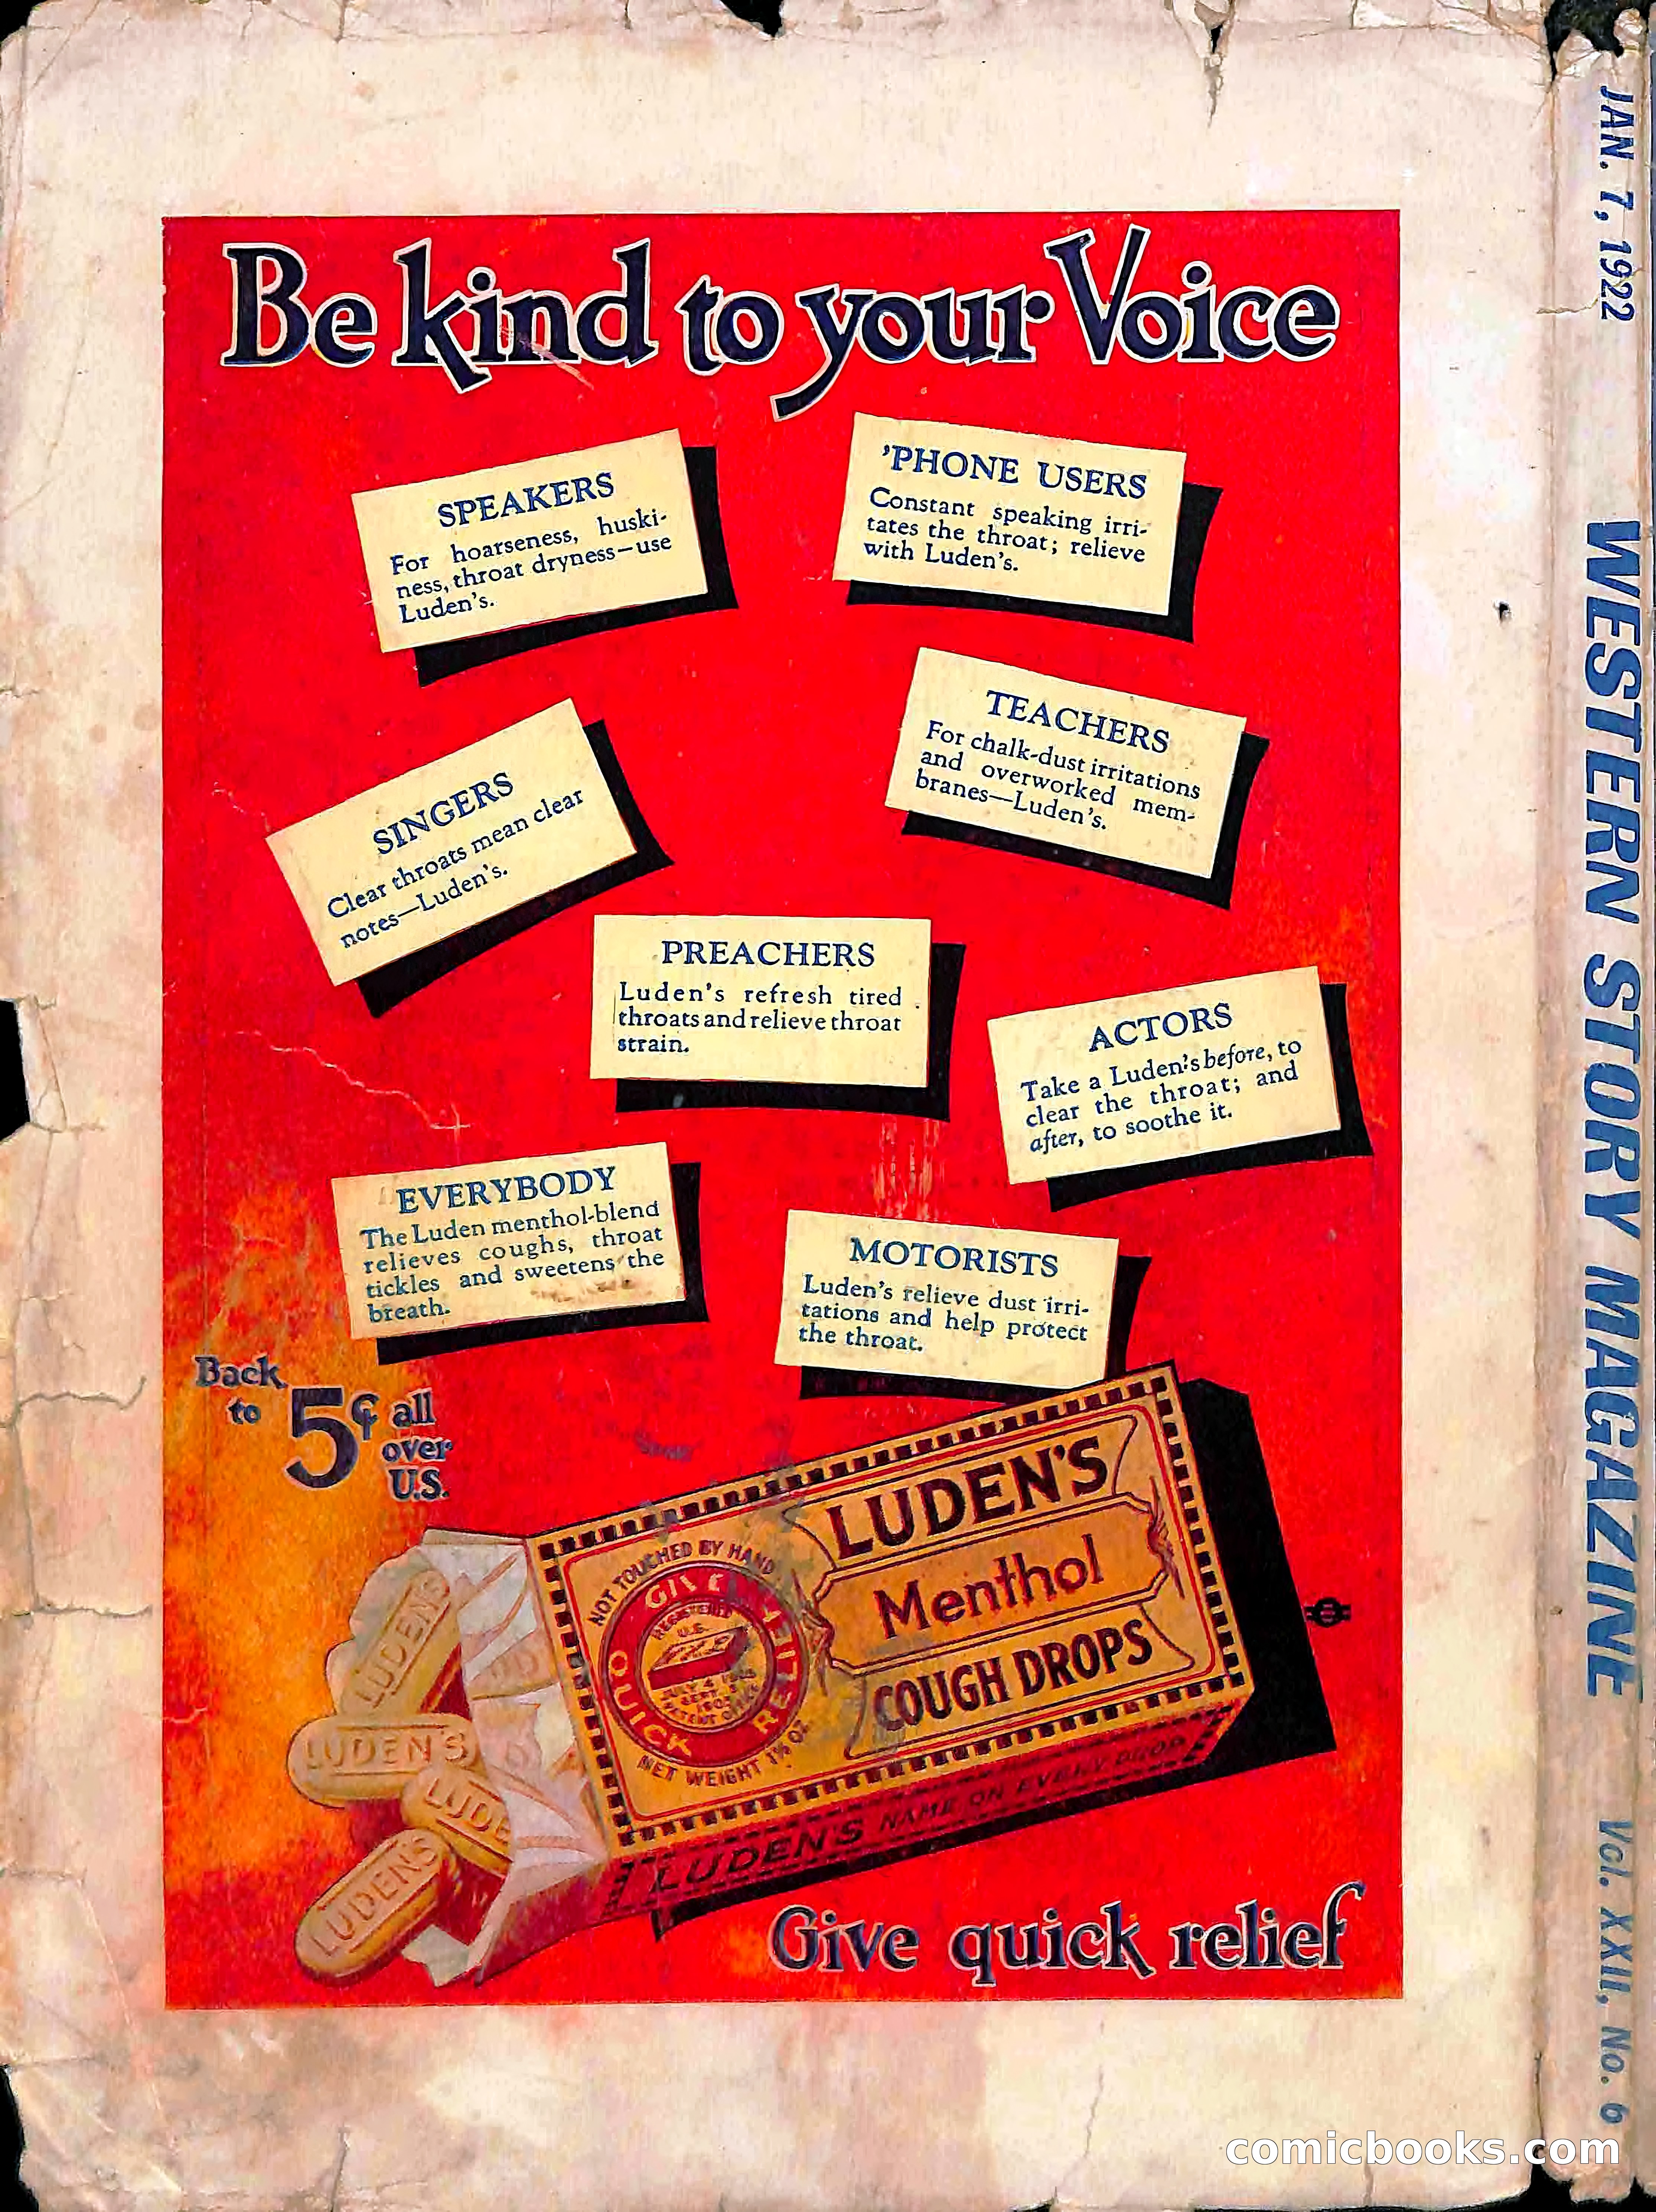 Be kind to your Voice
SPEAKERS
For hoarseness, huski-
ness, throat dryness—use
Luden's.
'PHONE USERS
Constant speaking irri-
tates the throat; relieve
with Luden's.
SINGERS
Clear throats mean clear
notes—Luden's.
TEACHERS
For chalk-dust irritations
and overworked mem-
branes—Luden's.
PREACHERS
Luden's refresh tired
throats and relieve throat
strain.
ACTORS
Take a Luden's before, to
clear the throat; and
after, to soothe it.
EVERYBODY
The Luden menthol-blend
relieves coughs, throat
tickles and sweetens the
breath.
MOTORISTS
Luden's relieve dust irri-
tations and help protect
the throat.
Back
to 5¢ all
over
U.S.
LUDEN'S
Menthol
COUGH DROPS
NOT TOUCHED BY HAND
GIVE QUICK RELIEF
REGISTERED
U.S.
JULY 4
PATENT OFFICE
NET WEIGHT 1⅜ OZ.
LUDEN'S NAME ON EVERY DROP
LUDENS
LUDEN'S
LUDE
LUDENS
Give quick relief
JAN. 7, 1922
WESTERN STORY MAGAZINE
Vol. XXII, No. 6
comicbooks.com